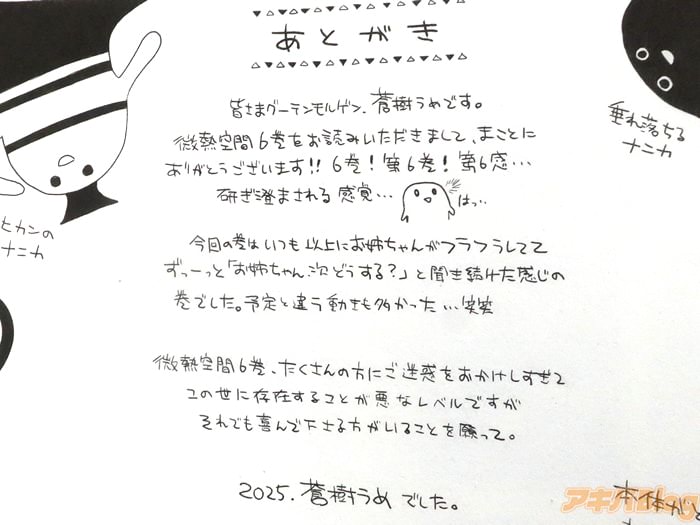 あとがき
皆さまグーテンモルゲン、蒼樹うめです。
微熱空間6巻をお読みいただきまして、まことに
ありがとうございます!! 6巻!第6巻!第6感…
研ぎ澄まされる感覚… はっ…
垂れ落ちる
ナニカ
ヒカンの
ナニカ
今回の巻はいつも以上にお姉ちゃんがフラフラしてて
ずっーっと「お姉ちゃん次どうする?」と聞き続けた感じの
巻でした。予定と違う動きも多かった…笑笑
微熱空間6巻、たくさんの方にご迷惑をおかけしすぎて
この世に存在することが悪なレベルですが
それでも喜んで下さる方がいることを願って。
2025. 蒼樹うめでした。
本体が
アキバBlog